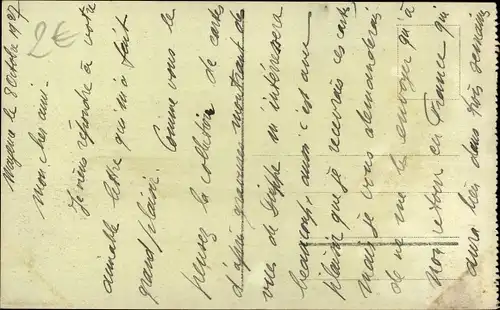 Mayence le 8 Octobre 1927
Mon cher ami.
Je viens répondre à votre
aimable lettre qui m'a fait
grand plaisir. Comme vous le
pensez la collection de cartes
d'après guerre montrant des
vues de Dieppe m'intéressera
beaucoup. aussi c'est avec
plaisir que je recevrais ces cartes
mais je vous demanderais
de ne me les envoyer qu'à
mon retour en France qui
aura lieu dans trois semaines
2€